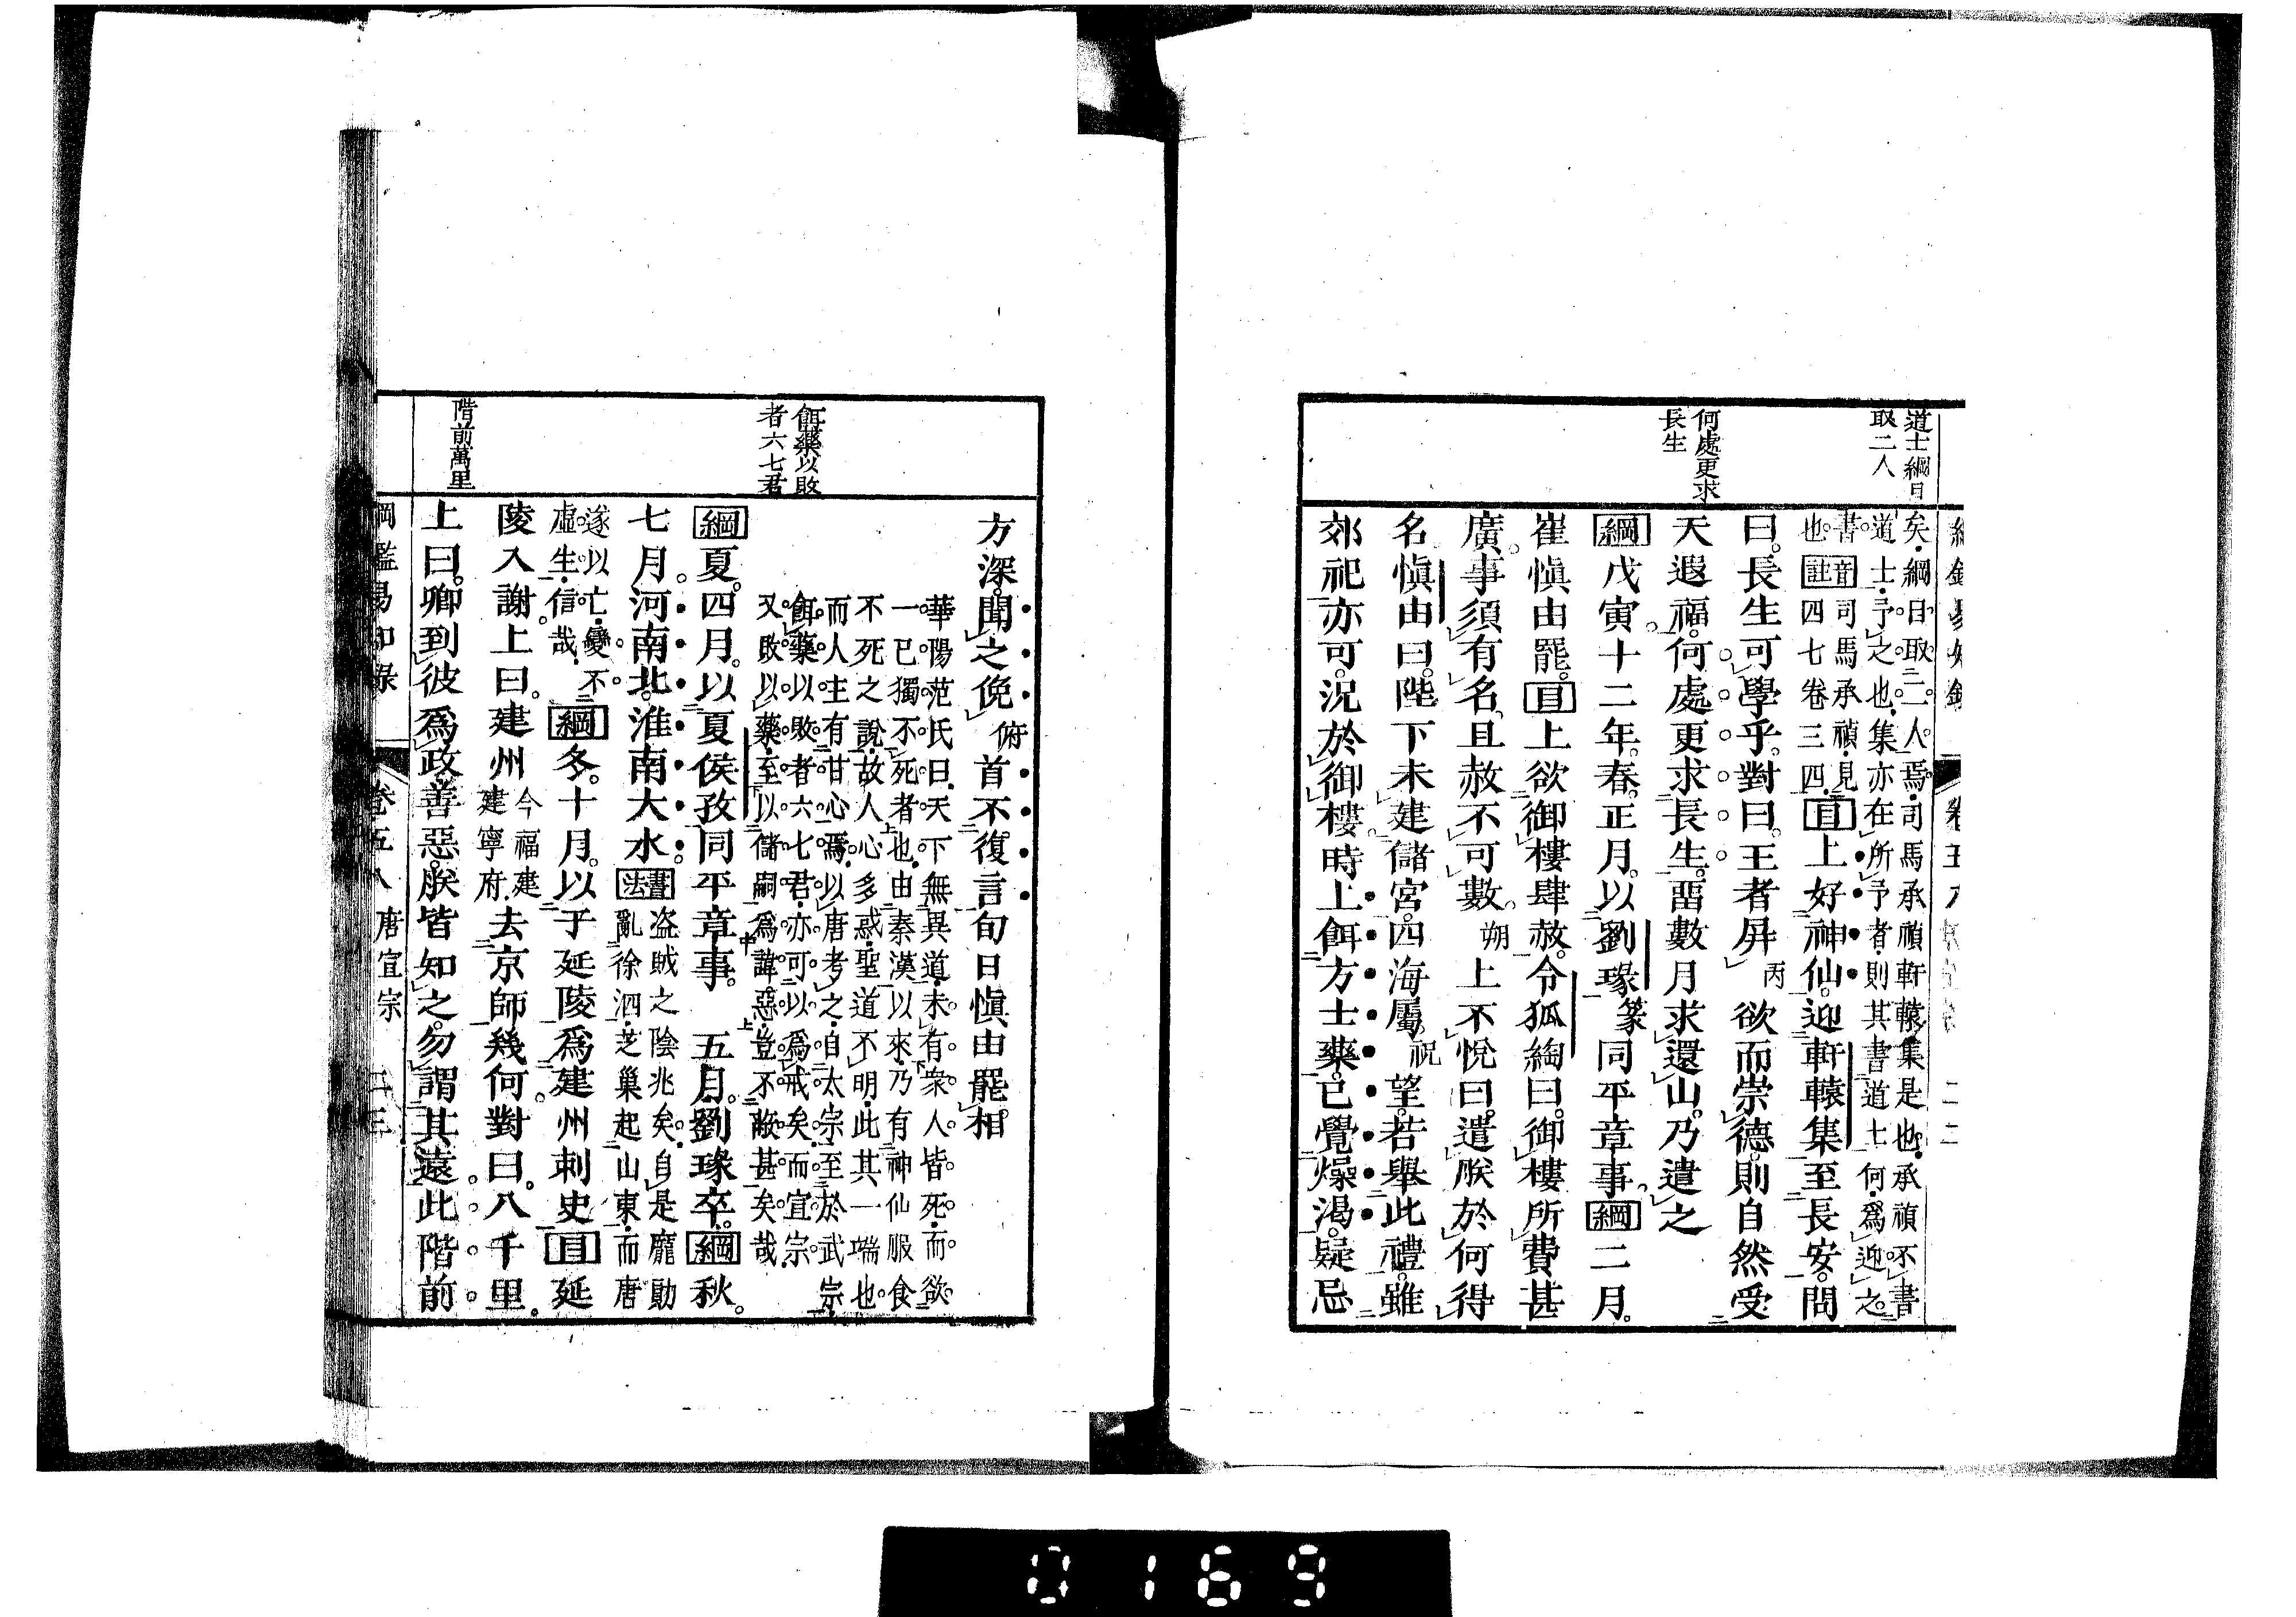 道士綱目
取二人
何處更求
長生
矣綱目取二人焉司馬承禎軒轅集是也承禎不書
道士予之也集亦在所予者則其書道士何爲迎之
書音司馬承禎見
也註四七卷三四目上好神仙迎軒轅集至長安問
曰長生可學乎對曰王者屏丙欲而崇德則自然受
天遐福何處更求長生畱數月求還山乃遣之
綱戊寅十二年春正月以劉瑑篆同平章事綱二月
崔愼由罷目上欲御樓肆赦令狐綯曰御樓所費甚
廣事須有名且赦不可數朔上不悅曰遣朕於何得
名愼由曰陛下未建儲宮四海屬祝望若舉此禮雖
郊祀亦可況於御樓時上餌方士藥已覺燥渴疑忌
卷五八 二二
餌藥以敗
者六七君
階前萬里
方深聞之俛俯首不復言旬日愼由罷相
華陽范氏曰天下無異道未有衆人皆死而欲
一己獨不死者也由秦漢以來乃有神仙服食
不死之說故人心多惑聖道不明此其一端也
而人主有甘心焉以唐考之自太宗至於武宗
餌藥以敗者六七君亦可以爲戒矣而宣宗
又敗以藥至以儲嗣爲諱惡豈不蔽甚矣哉
綱夏四月以夏侯孜同平章事 五月劉瑑卒綱秋
七月河南北淮南大水書法盜賊之陰兆矣自是龐勛
亂徐泗芝巢起山東而唐
遂以亡變不
虛生信哉綱冬十月以于延陵爲建州刺史目延
陵入謝上曰建州今福建
建寧府去京師幾何對曰八千里
上曰卿到彼爲政善惡朕皆知之勿謂其遠此階前
綱鑑易知錄 卷五八 唐宣宗 二三
0169